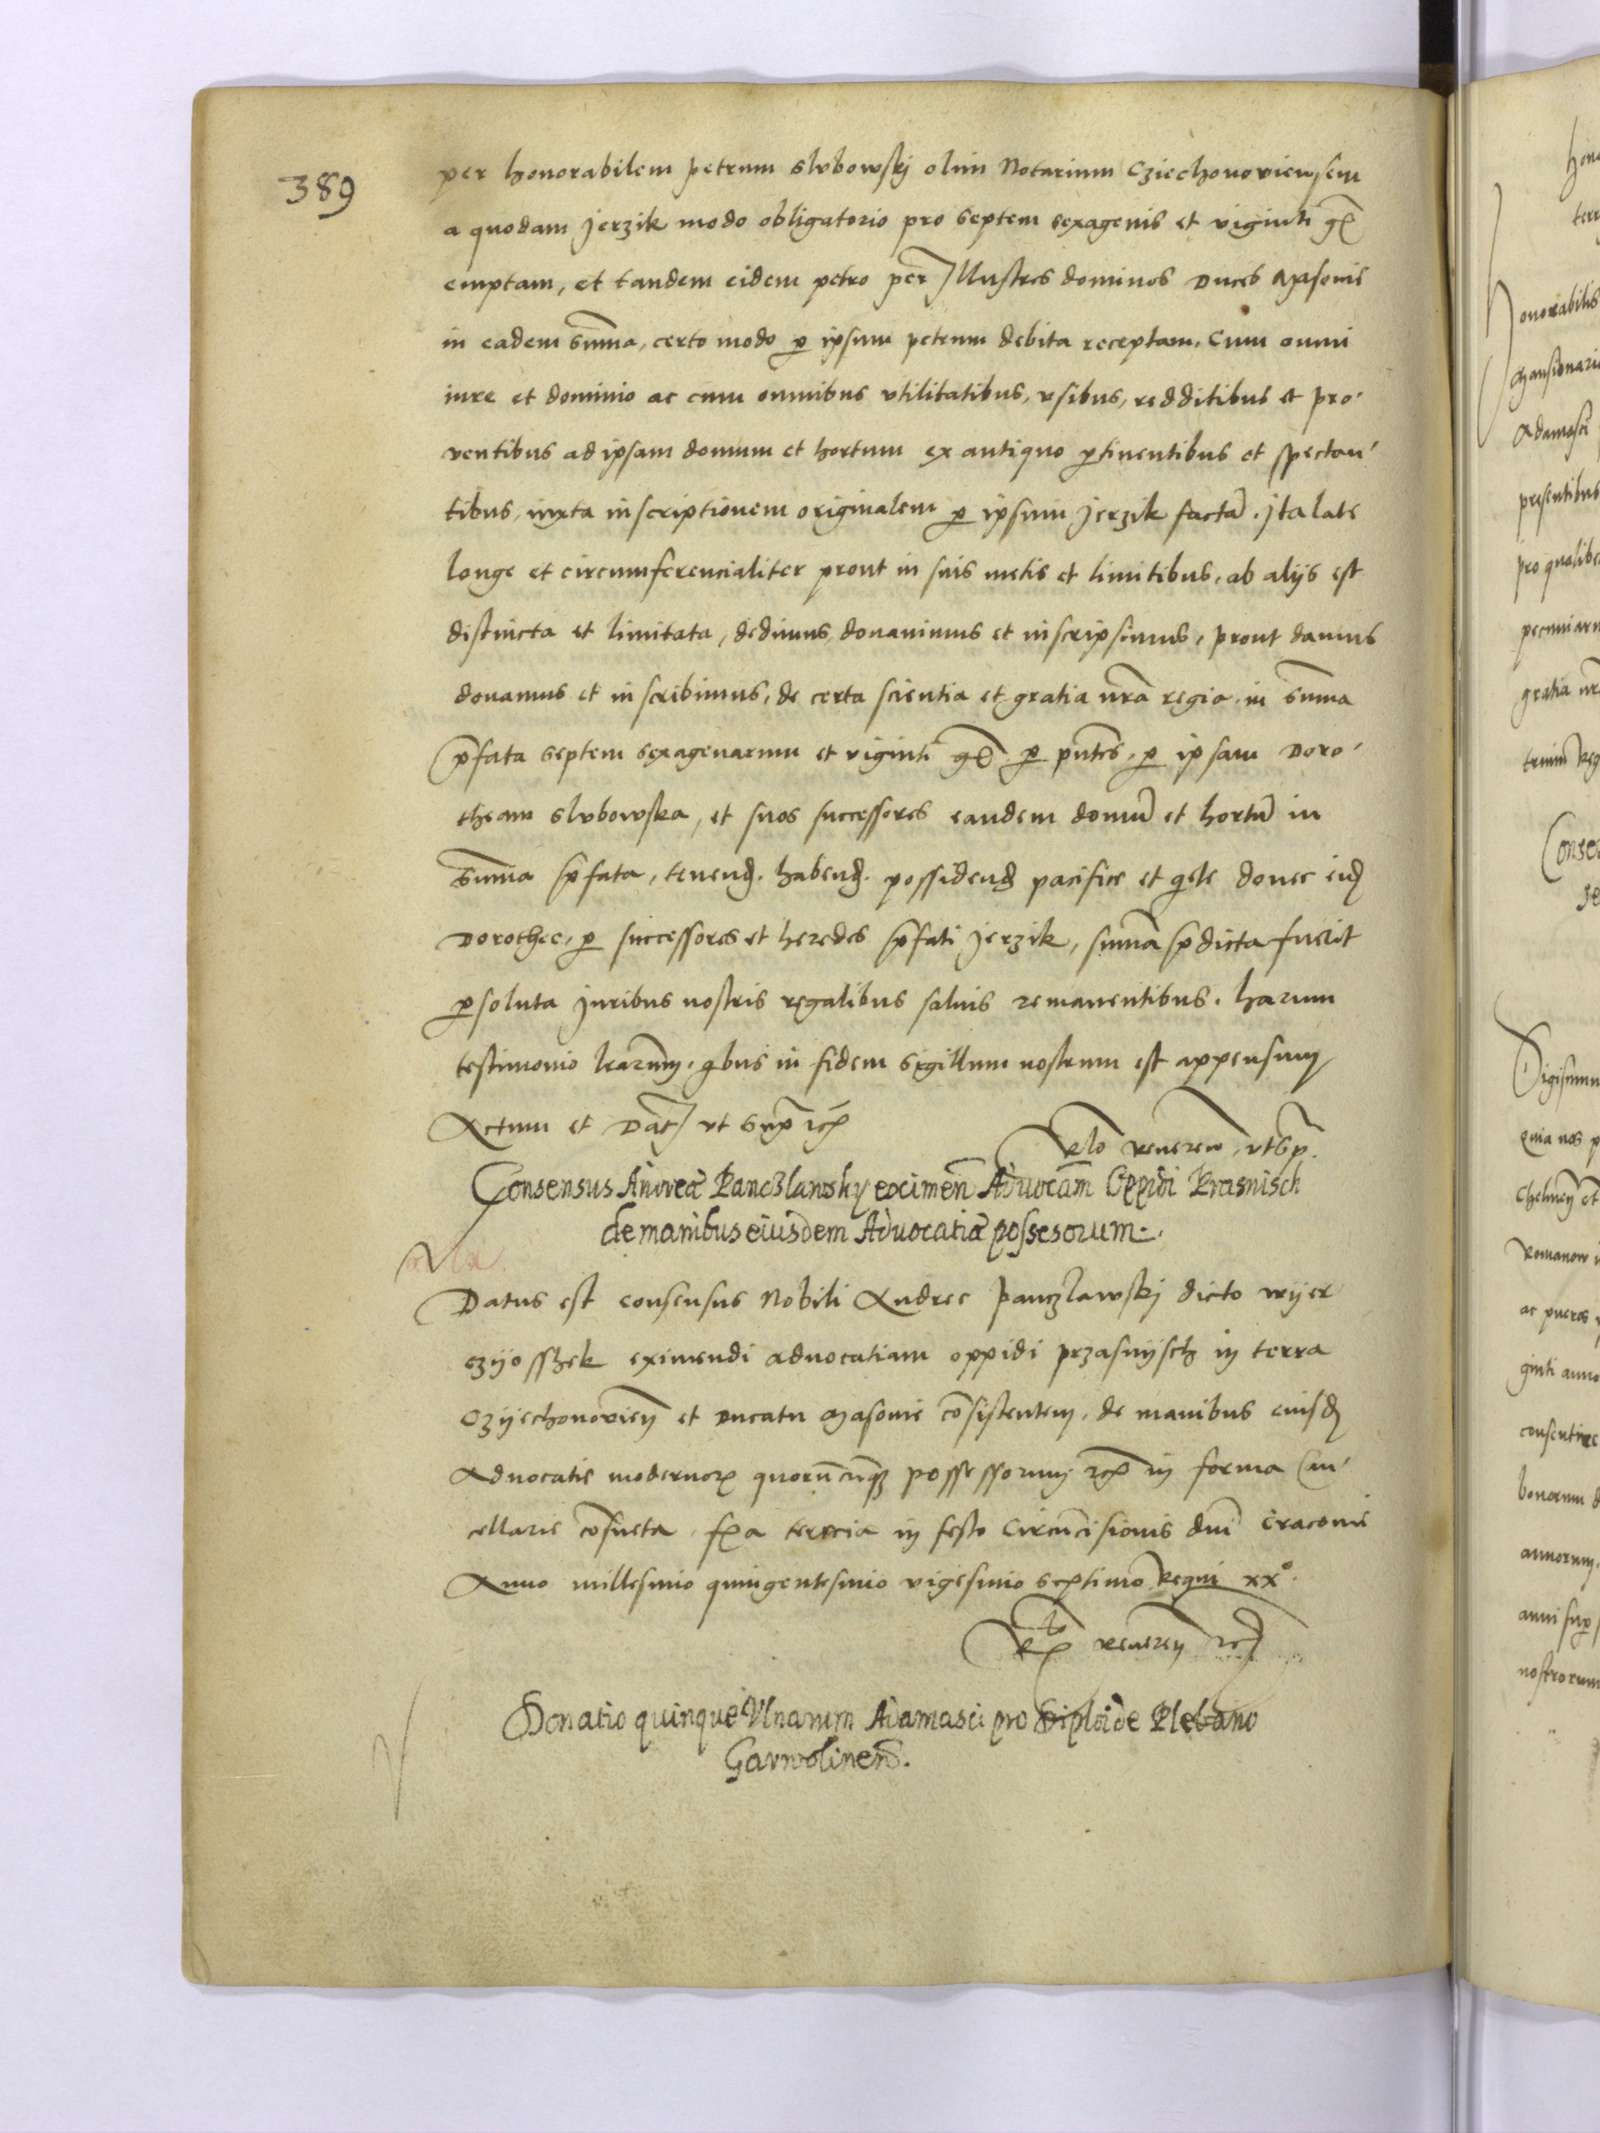 389
per honorabilem petrum slvbowskj olim Notarium Cziechonoviensem
a quodam Jerzik modo obligatorio pro septem sexagenis et viginti gr
emptam, et tandem eidem petro per Illustres dominos Duces Masovie
in eadem summa, certo modo p ipsum petrum debita receptam. Cum omni
iure et dominio ac cum omnibus vtilitatibus, vsibus, redditibus et pro
ventibus ad ipsam domum et hortum ex antiquo ptinentibus et spectan
tibus, iuxta inscriptionem originalem p ipsum Jerzik factã. Ita late
longe et circumferencialiter prout in suis metis et limitibus, ab alijs est
distincta et limitata, dedimus donavimus et inscripsimus, prout damus
donamus et inscribimus, de certa scientia et gratia nrã regia. in summa
pfata septem sexagenarum et viginti gr. p pntes. p ipsam Doro
theam slvbowska, et suos successores eandem domũ et hortũ in
summa pfata, tenend. habend. possidend pacifice et qete donec eid
Dorothee, p successores et heredes pfati Jerzik, summa pdicta fuerit
psoluta Juribus nostris regalibus salvis remanentibus. harum
testimonio lrarum, qbus in fidem sigillum nostrum est appensum
Actum et Dat vt supr
Rlo Reveren, vt sup.
Consensus Andreæ Panczlawsky eximen Advocam Oppidi Prasnisch
de manibus eiusdem Advocatiæ possesorum.
Datus est consensus Nobili Andree Panczlawskj dicto wijer
czijosszek eximendi advocatiam oppidi przasnijsch in terra
Czijechonovien et Ducatu Masovie cõsistentem, de manibus eiusd
Advocatie modernor quorũcũq possessorum in forma Can
cellarie cõsueta, fra tercia in festo Circũcisionis dni Cracovie
Anno millesimo quingentesimo vigesimo septimo Regni xx°.
Reveren
Donatio quinque Vlnarum Adamasci pro Diploide Plebano
Garwolinen.